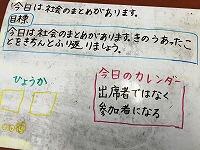 今日は社会のまとめがあります。
目標
今日は社会のまとめがあります。きのうあったこ
とをきちんとふり返りましょう。
ひょうか
今日のカレンダー
出席者ではなく
参加者になる